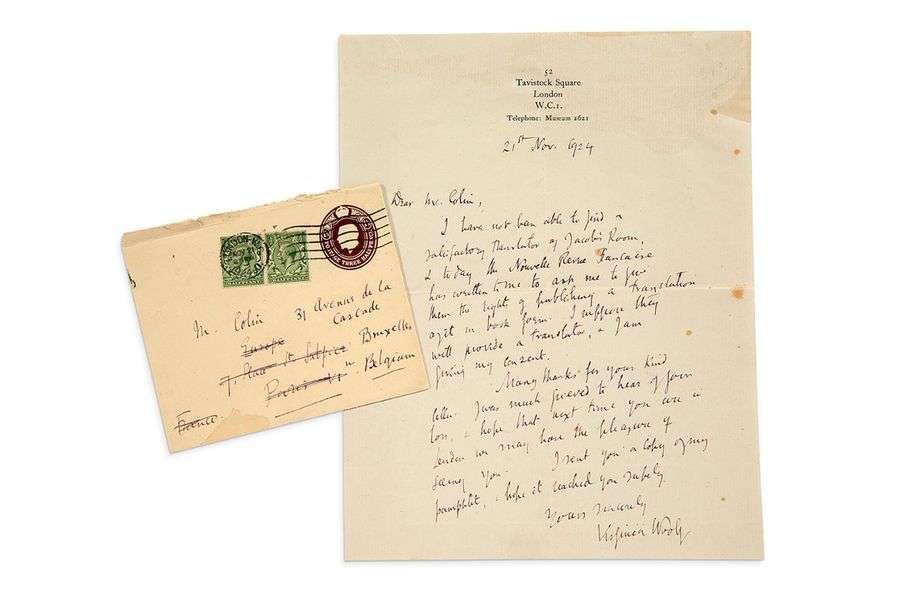 52
Tavistock Square
London
W.C.1.
Telephone: Museum 2621
21st Nov. 1924
Dear Mr. Colin,
I have not been able to find a
satisfactory translator of Jacob's Room,
& today the Nouvelle Revue Francaise
has written to me to ask me to give
them the right of publishing a translation
of it in book form. I suppose they
will provide a translator, & I am
giving my consent.
Many thanks for your kind
letter. I was much grieved to hear of your
loss, & hope that next time you are in
London we may have the pleasure of
seeing you. I sent you a copy of my
pamphlet, & hope it reached you safely.
Yours sincerely
Virginia Woolf
POSTAGE THREE HALFPENCE
M. Colin
31 Avenue de la
Cascade
Europe
7. Place St. Sulpice
Bruxelles
Paris VI
Belgium
France